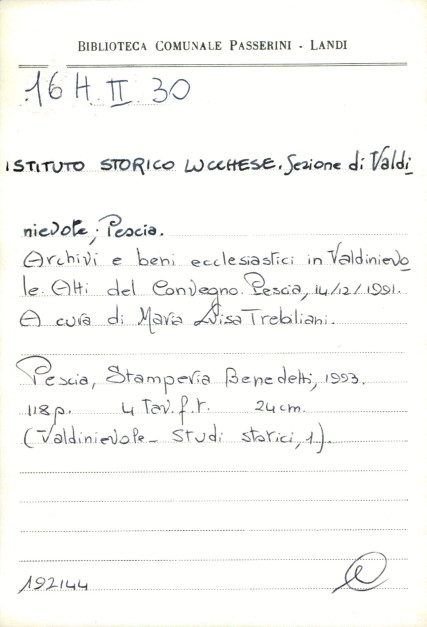 BIBLIOTECA COMUNALE PASSERINI - LANDI
16 H. II 30
ISTITUTO STORICO LUCCHESE. Sezione di Valdi
nievole; Pescia.
Archivi e beni ecclesiastici in Valdinievo
le. Atti del Convegno. Pescia, 14/12/1991.
A cura di Maria Luisa Trebiliani.
Pescia, Stamperia Benedetti, 1993.
118 p. 4 Tav. f.t. 24 cm.
(Valdinievole - Studi storici, 1).
192144